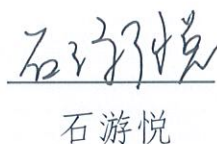 石游悦
石游悦